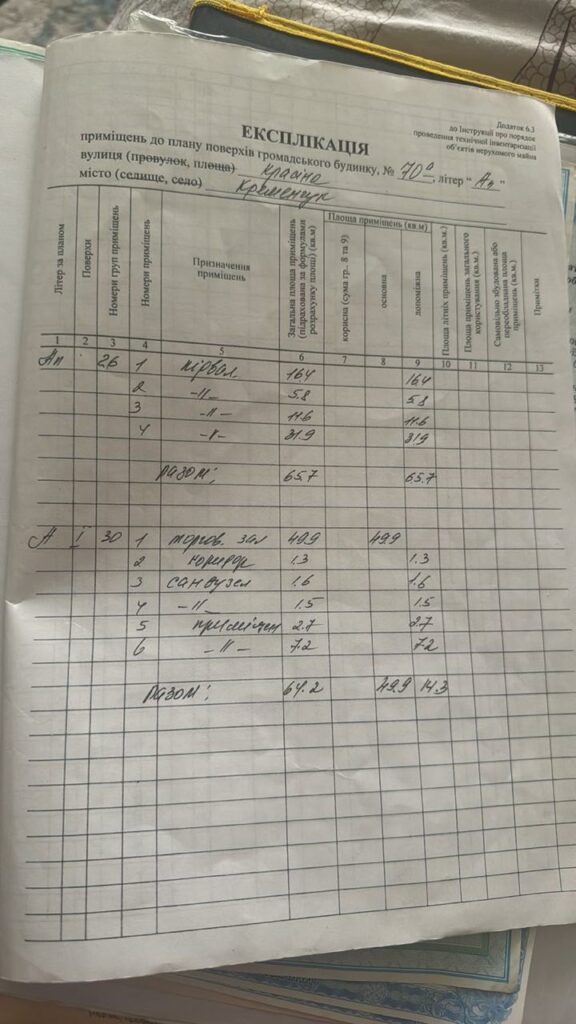 Додаток 6.3
до Інструкції про порядок
проведення технічної інвентаризації
об'єктів нерухомого майна
ЕКСПЛІКАЦІЯ
приміщень до плану поверхів громадського будинку, № 70а, літер "Ап"
вулиця (провулок, площа) Красіна
місто (селище, село) Кременчук
Літер за планом
Поверхи
Номери груп приміщень
Номери приміщень
Призначення приміщень
Загальна площа приміщень (підрахована за формулами розрахунку площі) (кв.м)
Площа приміщень (кв.м)
корисна (сума гр. 8 та 9)
основна
допоміжна
Площа літніх приміщень (кв.м.)
Площа приміщень загального користування (кв.м.)
Самовільно збудована або переобладнана площа приміщень (кв.м.)
Примітки
1 2 3 4 5 6 7 8 9 10 11 12 13
Ап 26 1 підвал 16.4 16.4
2 -||- 5.8 5.8
3 -||- 11.6 11.6
4 -||- 31.9 31.9
Разом: 65.7 65.7
А I 30 1 торгов. зал 49.9 49.9
2 коридор 1.3 1.3
3 санвузел 1.6 1.6
4 -||- 1.5 1.5
5 приміщен 2.7 2.7
6 -||- 7.2 7.2
Разом: 64.2 49.9 14.3